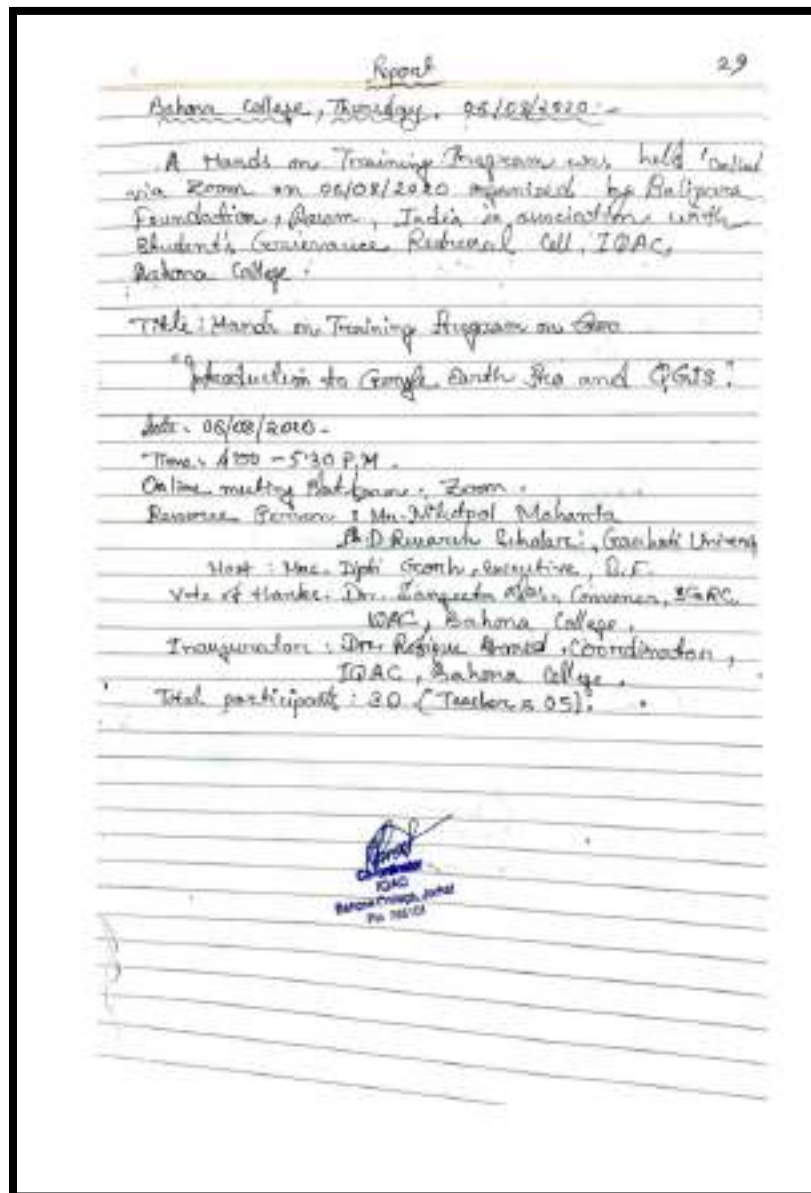 Report
29
Bahona College, Thursday, 06/08/2020:-
A Hands on Training Program was held 'Online
via Zoom on 06/08/2020 organized by Balipara
Foundation, Assam, India in association with
Student's Grievance Redressal Cell, IQAC,
Bahona College.
Title: Hands on Training Program on
"Introduction to Google Earth Pro and QGIS".
Date: 06/08/2020.
Time: 4:00 - 5:30 P.M.
Online meeting Platform: Zoom.
Resource Person: Mr. Nilutpol Mahanta
Ph.D Research Scholar, Gauhati University
Host: Mrs. Dipti Gconh, executive, B.F.
Vote of thanks: Dr. Sangeeta Convenor, SGRC,
IQAC, Bahona College,
Inaugurator: Dr. Rofique Ahmed, Coordinator,
IQAC, Bahona College,
Total participants: 30 (Teachers 05).
Co-ordinator
IQAC
Bahona College, Jorhat
Pin